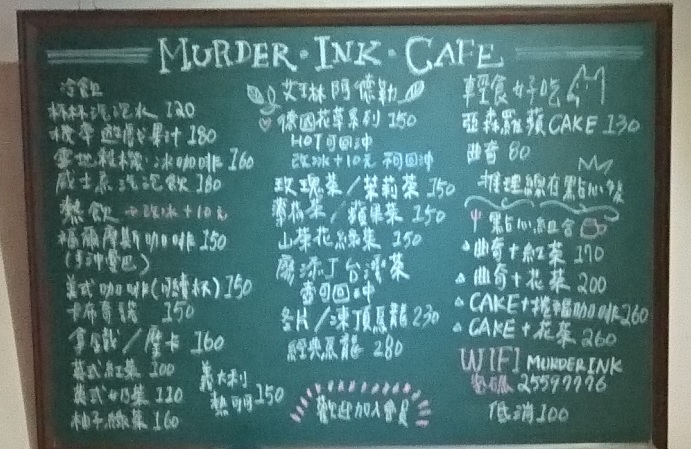 MURDER · INK · CAFE
冷飲
杯杯汽泡水 120
機帶遊戲果汁 180
雲地利機冰咖啡 160
威士忌汽泡飲 180
熱飲 →改冰+10元
福爾摩斯咖啡 150
(手沖曼巴)
美式咖啡(可續杯) 150
卡布奇諾 150
拿鐵/摩卡 160
英式紅茶 100
英式奶茶 120
柚子綠茶 160
義大利
熱可可 150
艾琳阿德勒
德國花草系列 150
HOT可回沖
改冰+10元 不可回沖
玫瑰茶/茉莉茶 150
蘋果茶 150
山茶花綠茶 150
廖添丁台灣茶
壺可回沖
冬片/凍頂烏龍 230
經典烏龍 280
歡迎加入會員
輕食好吃
亞森羅蘋CAKE 130
曲奇 80
推理總在點心後
點心組合
曲奇+紅茶 170
曲奇+花茶 200
CAKE+福咖啡 260
CAKE+花茶 260
WIFI MURDERINK
密碼 25597776
低消100